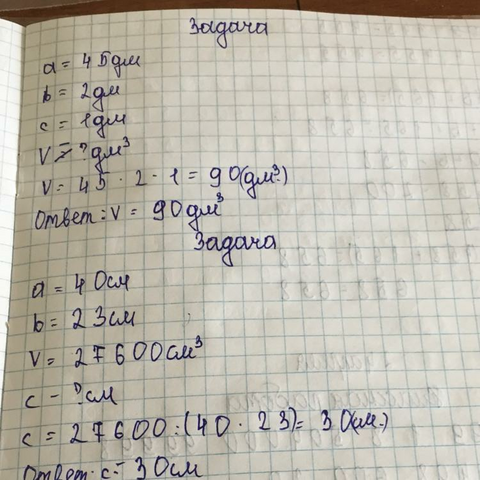 Задача
a = 45дм
b = 2дм
c = 1дм
V = ? дм³
V = 45 · 2 · 1 = 90(дм³)
Ответ: V = 90дм³
Задача
a = 40см
b = 23см
V = 27600см³
c - ? см
c = 27600:(40 · 23)= 30(см.)
Ответ: c = 30см